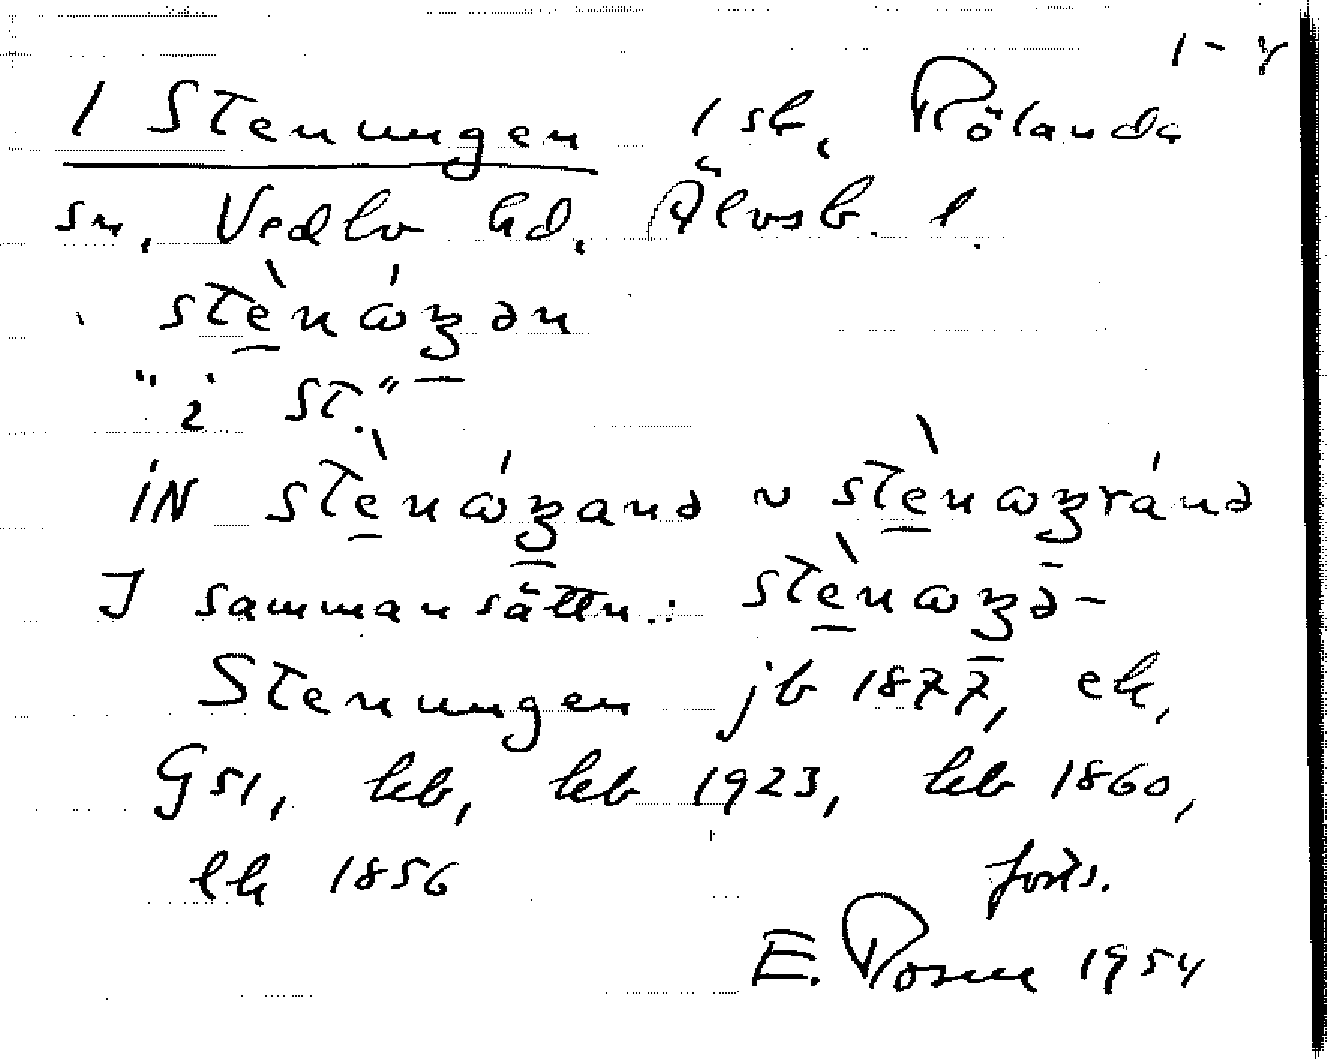 1-4
1 Stenungen 1 sk, Rölanda
sn. Vedbo hd. Älvsb. l.
stènώꜫən
"i st."
iN stènώꜫanə ~ stènωꜫránə
I sammansättn.: stènωꜫə-
Stenungen jb 1877, ek,
G51, kb, kb 1923, kb 1860,
lk 1856
forts.
E. Rosell 1954